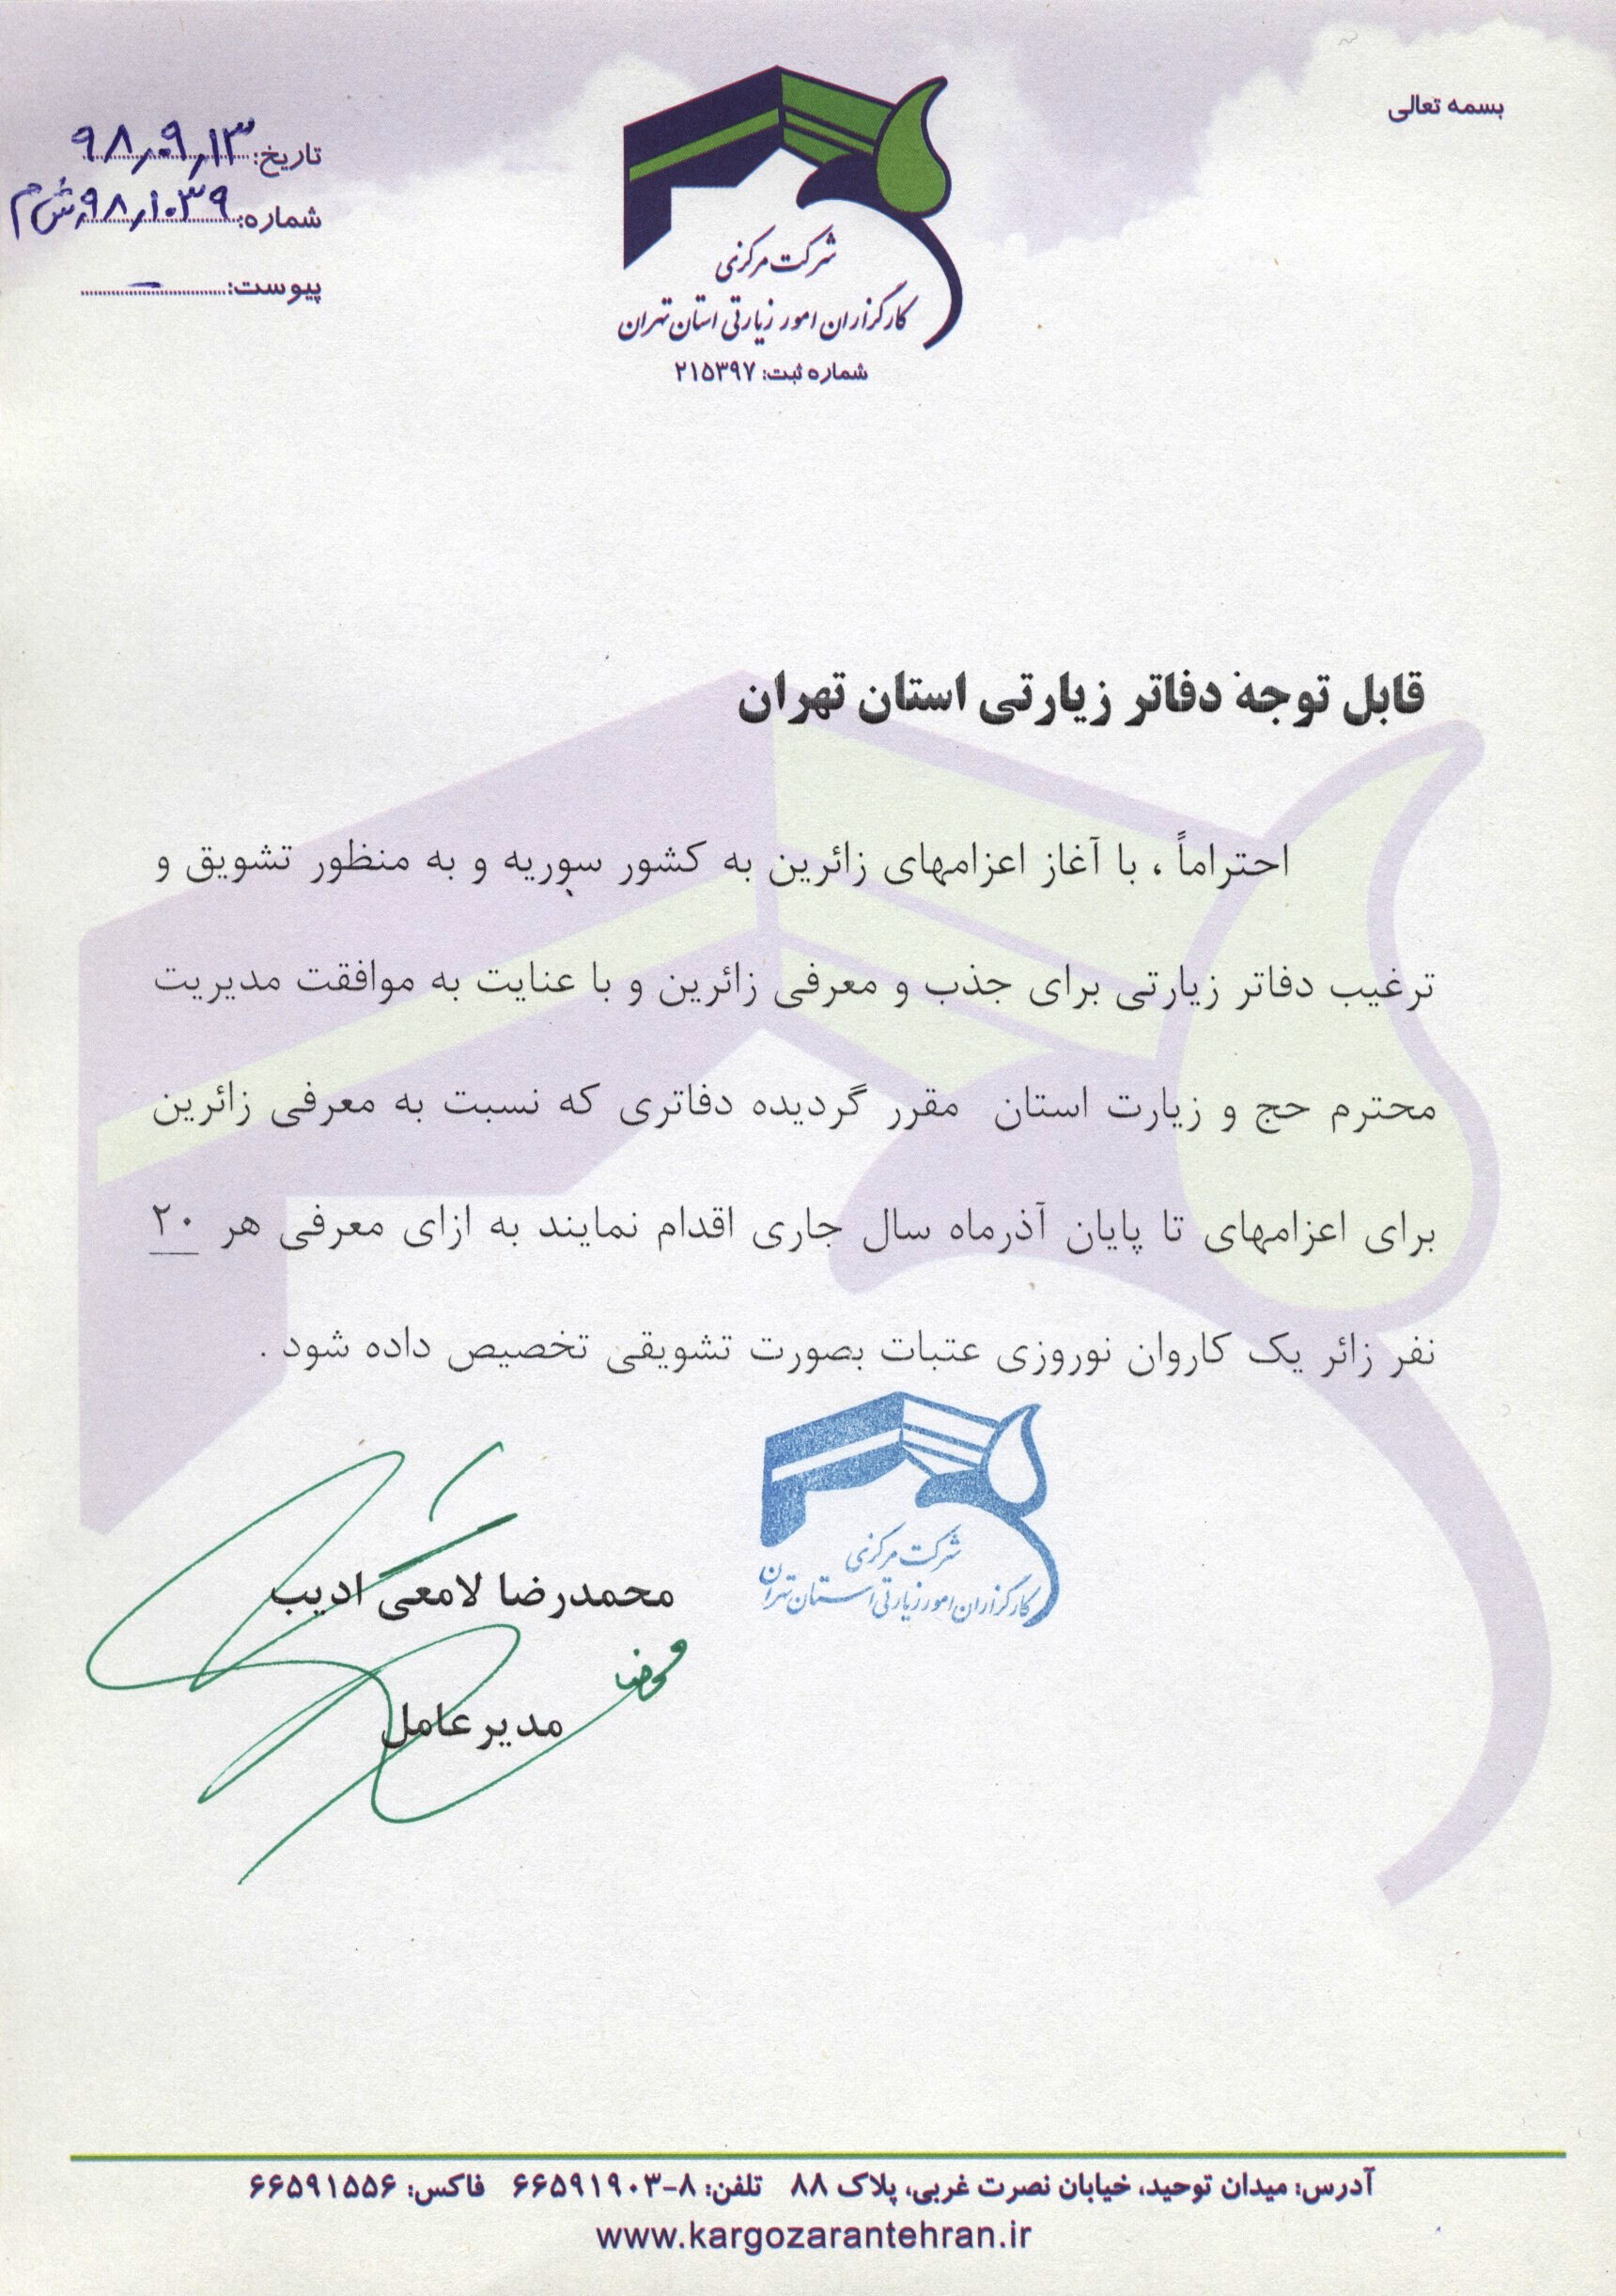 بسمه تعالی
تاریخ: ۹۸٫۰۹٫۱۳
شماره: ۹۸٫۱۰۳۹٫ش م
پیوست: ــ
شرکت مرکزی
کارگزاران امور زیارتی استان تهران
شماره ثبت: ۲۱۵۳۹۷
قابل توجه دفاتر زیارتی استان تهران
احتراماً ، با آغاز اعزامهای زائرین به کشور سوریه و به منظور تشویق و
ترغیب دفاتر زیارتی برای جذب و معرفی زائرین و با عنایت به موافقت مدیریت
محترم حج و زیارت استان مقرر گردیده دفاتری که نسبت به معرفی زائرین
برای اعزامهای تا پایان آذرماه سال جاری اقدام نمایند به ازای معرفی هر ۲۰
نفر زائر یک کاروان نوروزی عتبات بصورت تشویقی تخصیص داده شود .
شرکت مرکزی
کارگزاران امور زیارتی استان تهران
محمدرضا لامعی ادیب
مدیرعامل
آدرس: میدان توحید، خیابان نصرت غربی، پلاک ۸۸ تلفن: ۸-۶۶۵۹۱۹۰۳ فاکس: ۶۶۵۹۱۵۵۶
www.kargozarantehran.ir